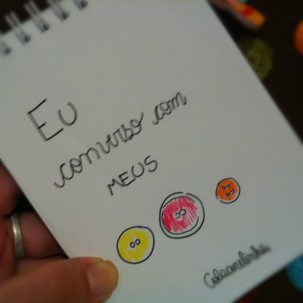 Eu
converso com
MEUS